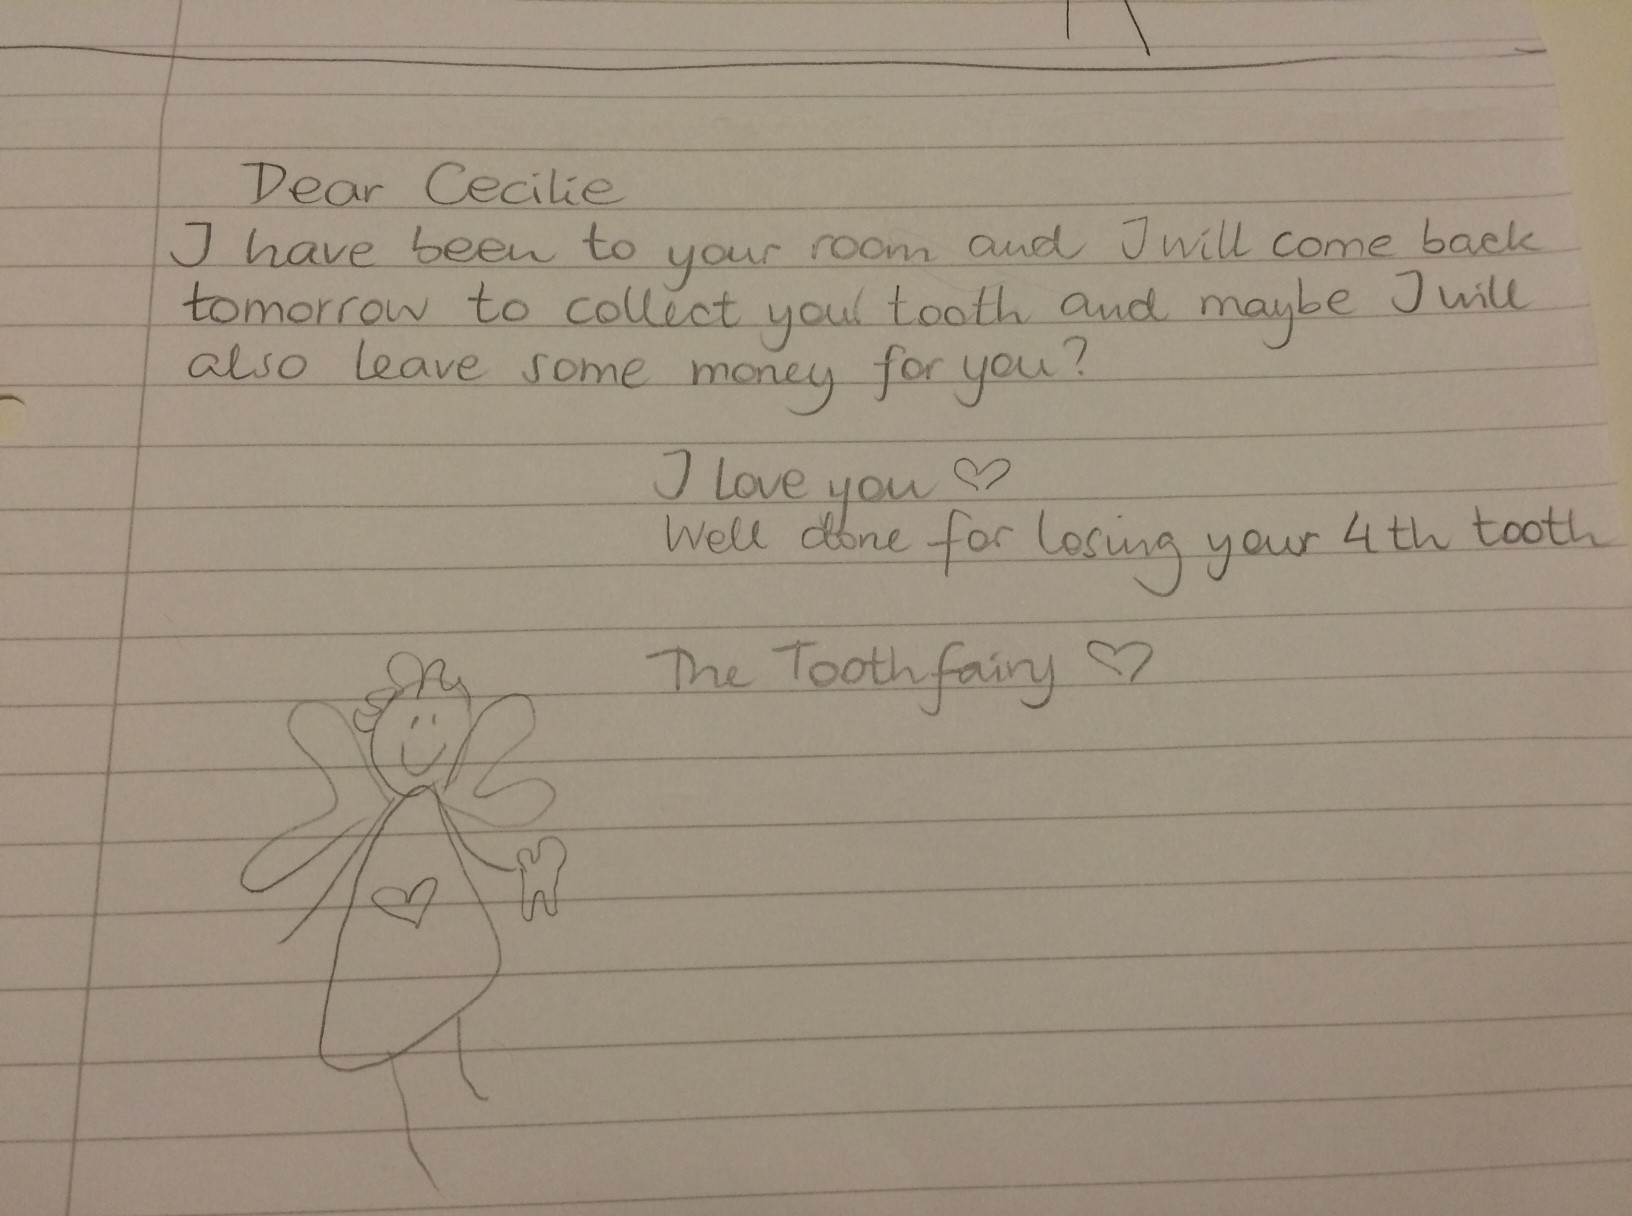 Dear Cecilie
I have been to your room and I will come back
tomorrow to collect your tooth and maybe I will
also leave some money for you?
I love you ♡
Well done for losing your 4th tooth
The Toothfairy ♡